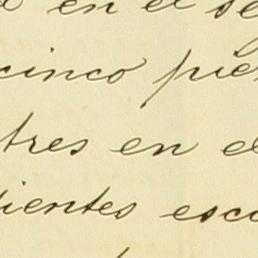 en el se
cinco pie
tres en el
ientes esca